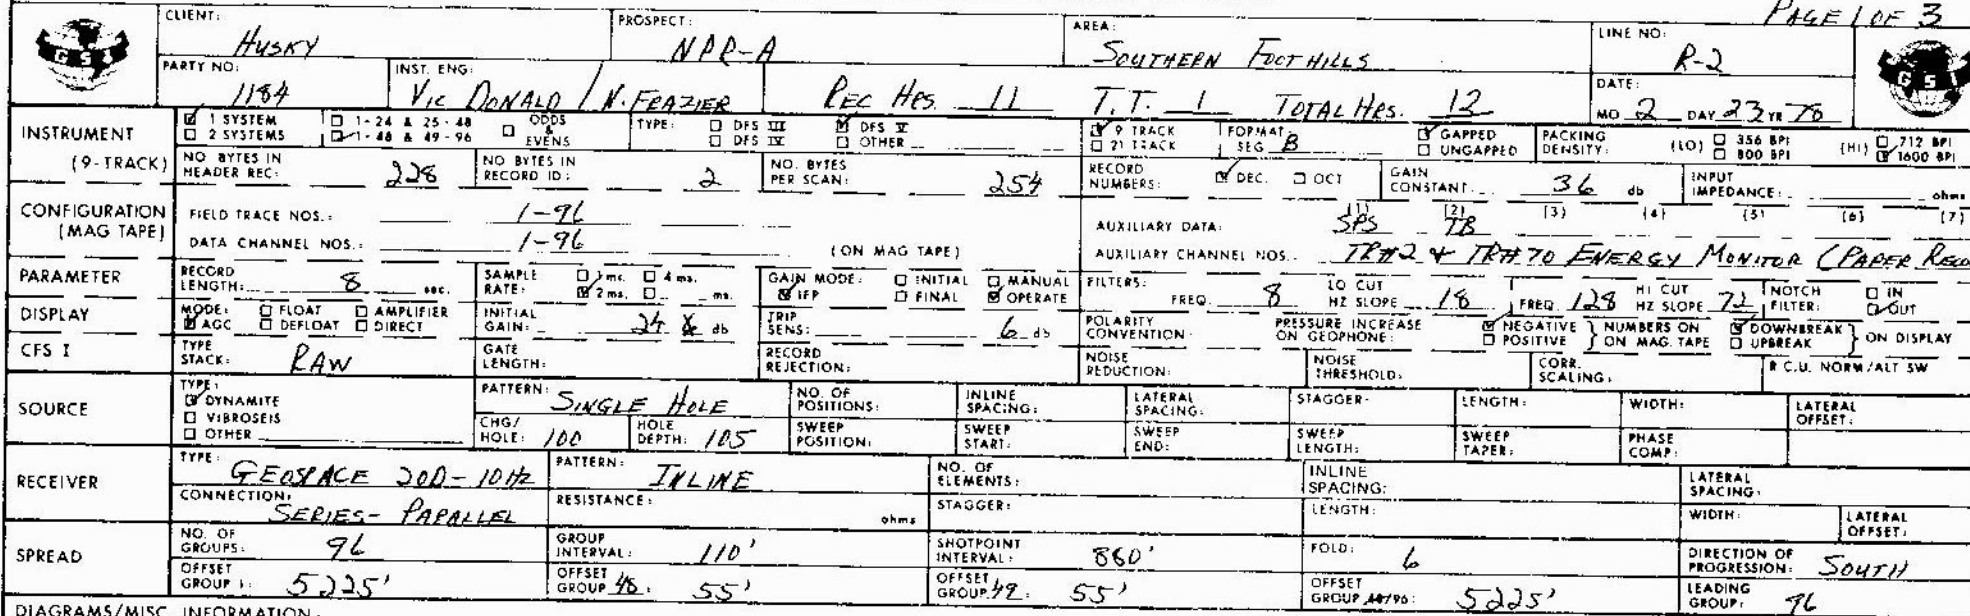 PAGE 1 OF 3
GSI
CLIENT: HUSKY PROSPECT: NPR-A AREA: SOUTHERN FOOTHILLS LINE NO: R-2
GSI
PARTY NO: 1184 INST. ENG: VIC DONALD / N. FRAZIER REC HRS. 11 T.T. 1 TOTAL HRS. 12 DATE: MO 2 DAY 23 YR 78
INSTRUMENT (9-TRACK)
1 SYSTEM 1-24 & 25-48 ODDS & EVENS TYPE: DFS III DFS V 9 TRACK FORMAT: SEG B GAPPED PACKING DENSITY: (LO) 356 BPI (HI) 712 BPI
2 SYSTEMS 1-48 & 49-96 DFS IV OTHER 21 TRACK UNGAPPED 800 BPI 1600 BPI
NO BYTES IN HEADER REC: 228 NO BYTES IN RECORD ID: 2 NO. BYTES PER SCAN: 254 RECORD NUMBERS: DEC. OCT GAIN CONSTANT: 36 db INPUT IMPEDANCE: ohms
CONFIGURATION (MAG TAPE)
FIELD TRACE NOS.: 1-96 AUXILIARY DATA: (1) SPS (2) TB (3) (4) (5) (6) (7)
DATA CHANNEL NOS.: 1-96 (ON MAG TAPE) AUXILIARY CHANNEL NOS. TR#2 & TR#70 ENERGY MONITOR (PAPER RECO
PARAMETER RECORD LENGTH: 8 sec. SAMPLE RATE: 1 ms. 4 ms. 2 ms. ms. GAIN MODE: INITIAL MANUAL IFP FINAL OPERATE FILTERS: FREQ. 8 LO CUT HZ SLOPE 18 FREQ. 128 HI CUT HZ SLOPE 72 NOTCH FILTER: IN OUT
DISPLAY MODE: FLOAT AMPLIFIER AGC DEFLOAT DIRECT INITIAL GAIN: 24 db TRIP SENS: 6 db POLARITY CONVENTION: PRESSURE INCREASE ON GEOPHONE: NEGATIVE POSITIVE } NUMBERS ON ON MAG. TAPE DOWNBREAK UPBREAK } ON DISPLAY
CFS I TYPE STACK: RAW GATE LENGTH: RECORD REJECTION: NOISE REDUCTION: NOISE THRESHOLD: CORR. SCALING: R C.U. NORM/ALT SW
SOURCE TYPE: DYNAMITE VIBROSEIS OTHER
PATTERN: SINGLE HOLE NO. OF POSITIONS: INLINE SPACING: LATERAL SPACING: STAGGER: LENGTH: WIDTH: LATERAL OFFSET:
CHG/HOLE: 100 HOLE DEPTH: 105 SWEEP POSITION: SWEEP START: SWEEP END: SWEEP LENGTH: SWEEP TAPER: PHASE COMP:
RECEIVER TYPE: GEOSPACE 20D-10Hz PATTERN: INLINE NO. OF ELEMENTS: INLINE SPACING: LATERAL SPACING:
CONNECTION: SERIES-PARALLEL RESISTANCE: ohms STAGGER: LENGTH: WIDTH: LATERAL OFFSET:
SPREAD NO. OF GROUPS: 96 GROUP INTERVAL: 110' SHOTPOINT INTERVAL: 880' FOLD: 6 DIRECTION OF PROGRESSION: SOUTH
OFFSET GROUP 1: 5225' OFFSET GROUP 48: 55' OFFSET GROUP 49: 55' OFFSET GROUP 48/96: 5225' LEADING GROUP: 96
DIAGRAMS/MISC. INFORMATION: